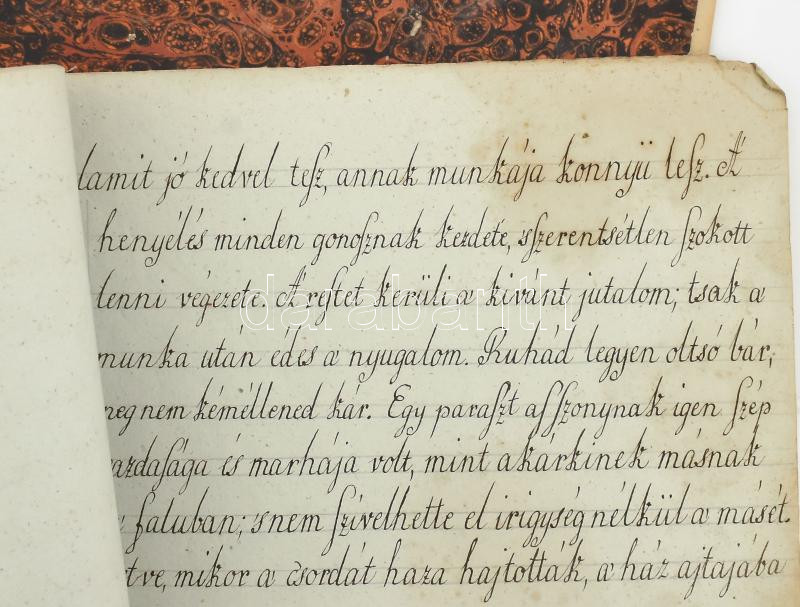 lamit jó kedvel tesz, annak munkája konnyü lesz. A'
henyélés minden gonosznak kezdete, 's szerentsétlen szokott
lenni végezete. A' restet kerüli a' kivánt jutalom; tsak a'
munka után édes a' nyugalom. Ruhád legyen oltsó bár,
meg nem kéméllened kár. Egy paraszt asszonynak igen szép
gazdasága és marhája volt, mint akárkinek másnak
faluban; 's nem szívelhette el irigység nélkül a' másét.
tve, mikor a' csordát haza hajtották, a' ház ajtajába
darabanth